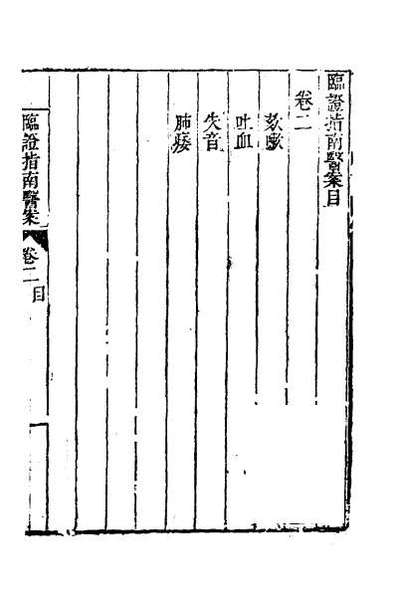 臨證指南醫案目
卷二
欬嗽
吐血
失音
肺痿
臨證指南醫案 卷二目